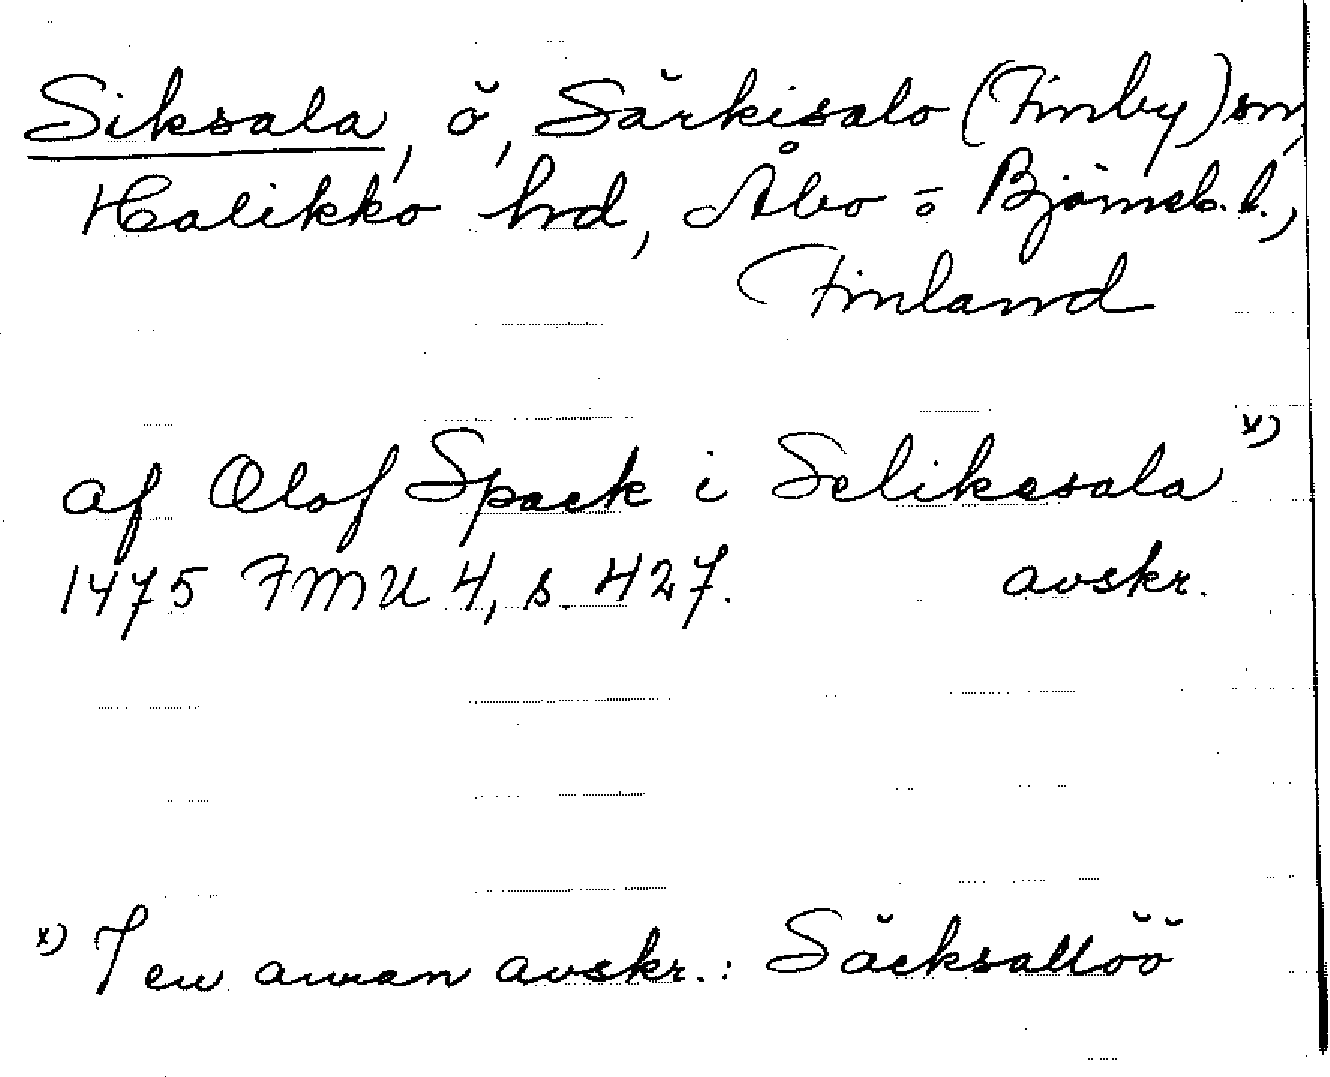 Siksala, ö, Särkisalo (Finby) sn,
Halikko hrd, Åbo o Björneb. l.,
Finland
af Olof Spack i Seliksala x)
1475 FMU 4, s. 427. avskr.
x) I en annan avskr.: Säcksallöö